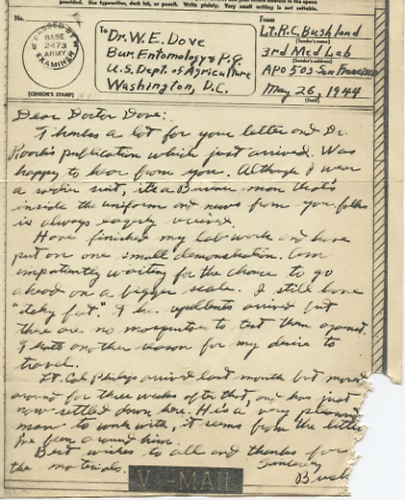 provided. Use typewriter, dark ink, or pencil. Write plainly. Very small writing is not suitable.
No.
PASSED BY
BASE
2473
ARMY
EXAMINER
(CENSOR'S STAMP)
To
Dr. W.E. Dove
Bur. Entomology & P.Q.
U.S. Dept. of Agriculture
Washington, D.C.
From
Lt. R.C. Bushland
(Sender's name)
3rd Med Lab
(Sender's address)
APO 503 San Francisco
May 26, 1944
(Date)
Dear Doctor Dove:
Thanks a lot for your letter and Dr.
publication which just arrived. Was
happy to hear from you. Although I wear
a soldier suit, it's a Bureau man that's
inside the uniform and news from you folks
is always eagerly received.
Have finished my lab work and have
put on one small demonstration. Am
impatiently waiting for the chance to go
ahead on a bigger scale. I still have
"itchy feet". The repellents arrived but
there are no mosquitoes to test them against.
That's another reason for my desire to
travel.
Lt. Col Philip arrived last month but moved
around for three weeks after that, and has just
now settled down here. He is a very pleasant
man to work with, it seems from the little
I've been around him.
Best wishes to all and thanks for
the materials.
Sincerely
Bush
V-MAIL